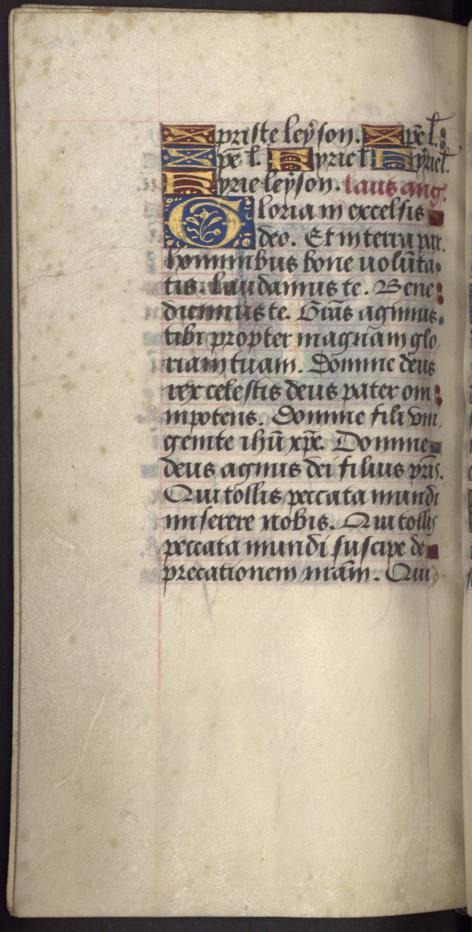 Xpriste leyson. Xp̄e l̄.
Xp̄e l̄. Kyrie l̄ Kyrie l̄.
Kyrie leyson. laus ang.
Gloria in excelsis
deo. Et in terra pax
hominibus bone volūta
tis. Laudamus te. Bene
dicimus te. Gr̄as agimus
tibi propter magnam glo
riam tuam. Domine deus
rex celestis deus pater om
nipotens. Domine fili vni
genite ihū xp̄e. Domine
deus agnus dei filius pr̄is.
Qui tollis peccata mundi
miserere nobis. Qui tollis
peccata mundi suscipe de
precationem nr̄am. Qui